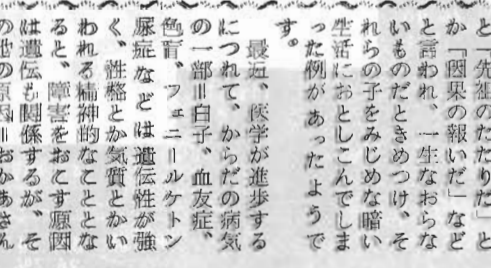 と「先祖のたたりだ」と
か「因果の報いだ」など
と言われ、一生なおらな
いものだときめつけ、そ
れらの子をみじめな暗い
生活におとしこんでしま
った例があったようで
す。
最近、医学が進歩する
につれて、からだの病気
の一部＝白子、血友症、
色盲、フェニールケトン
尿症などは遺伝性が強
く、性格とか気質とかい
われる精神的なこととな
ると、障害をおこす原因
は遺伝も関係するが、そ
の他の原因＝おかあさん